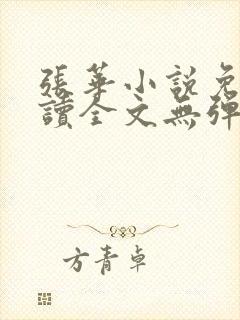 張華小說免
讀全文無彈
方青卓